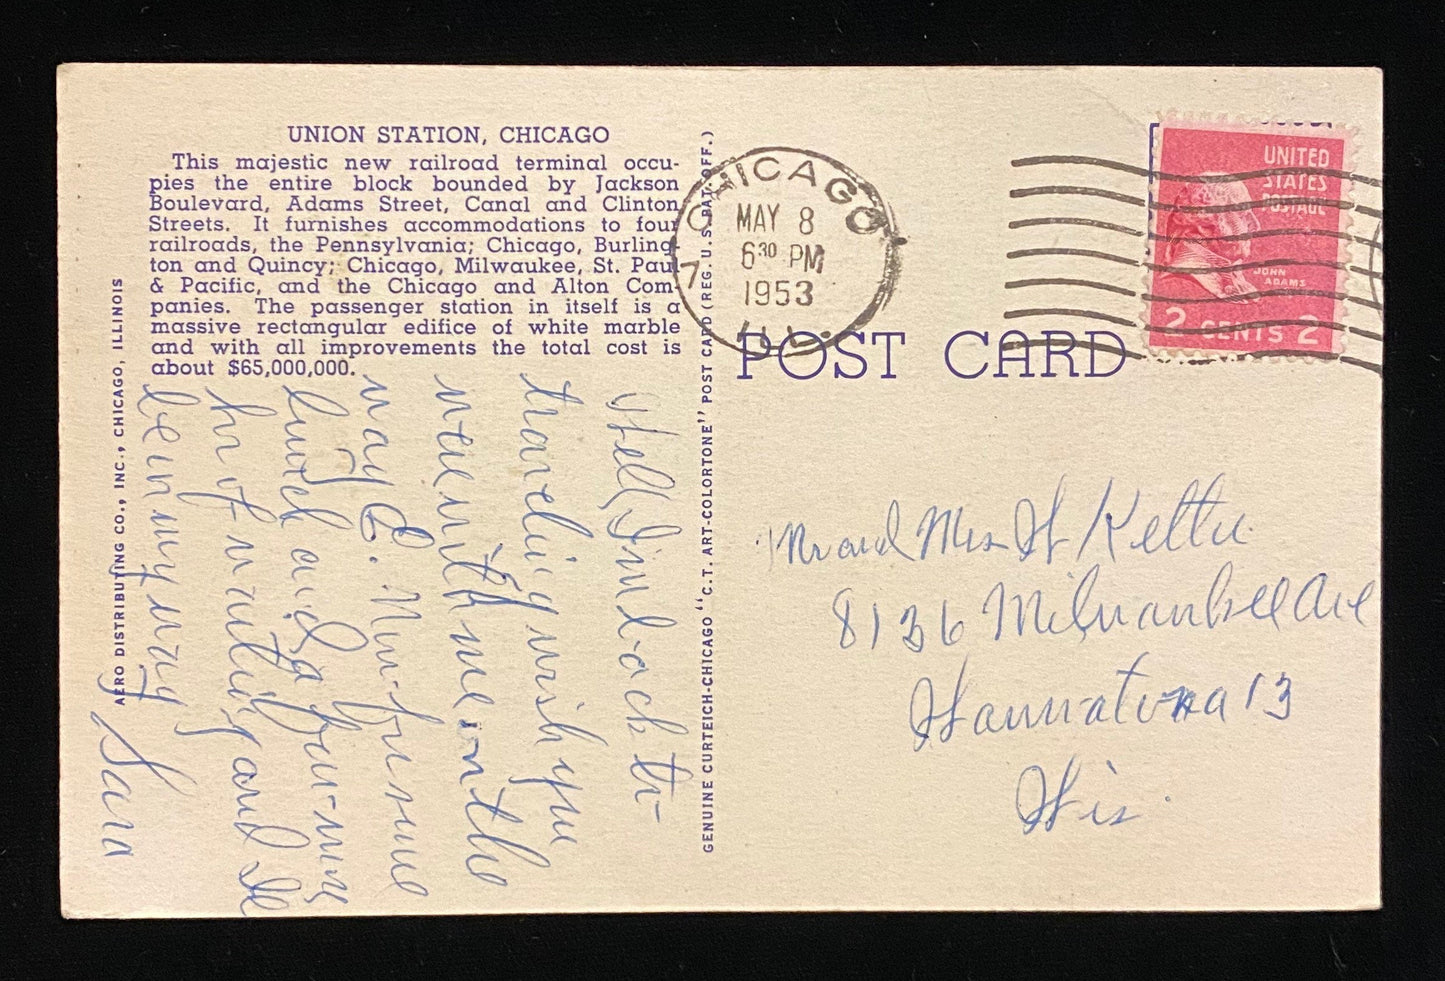 UNION STATION, CHICAGO
This majestic new railroad terminal occu-
pies the entire block bounded by Jackson
Boulevard, Adams Street, Canal and Clinton
Streets. It furnishes accommodations to four
railroads, the Pennsylvania; Chicago, Burling-
ton and Quincy; Chicago, Milwaukee, St. Paul
& Pacific, and the Chicago and Alton Com-
panies. The passenger station in itself is a
massive rectangular edifice of white marble
and with all improvements the total cost is
about $65,000,000.
AERO DISTRIBUTING CO., INC., CHICAGO, ILLINOIS
Well, I'm back tr-
aveling wish you
were with me on the
way E. Now for some
lunch and a few more
hr of waiting and Ill
be in my way
Sara
GENUINE CURTEICH-CHICAGO "C.T. ART-COLORTONE" POST CARD (REG. U.S. PAT. OFF.)
CHICAGO
7
ILL.
MAY 8
6 30 PM
1953
POST CARD
UNITED
STATES
POSTAGE
JOHN
ADAMS
2 CENTS 2
Mr and Mrs W
8136 Milwaukee Ave
Wauwatosa 13
Wis.